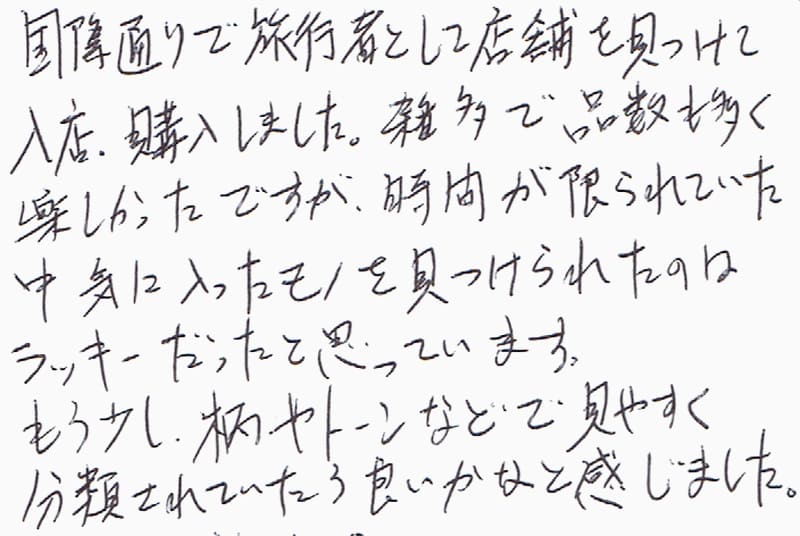 国際通りで旅行者として店舗を見つけて
入店、購入しました。雑多で品数も多く
楽しかったですが、時間が限られていた
中気に入ったモノを見つけられたのは
ラッキーだったと思っています。
もう少し、柄やトーンなどで見やすく
分類されていたら良いかなと感じました。